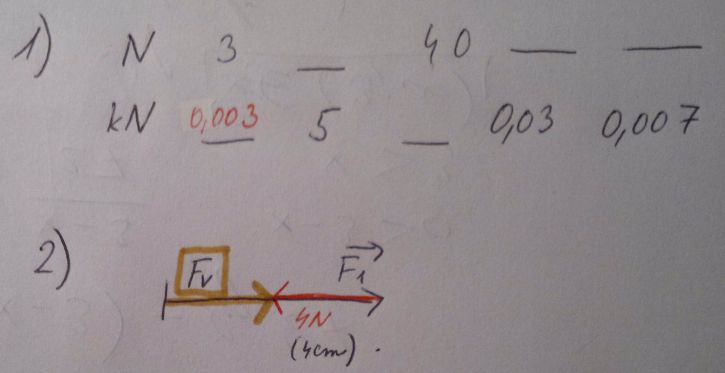 1) N 3 __ 40 __ __
kN 0,003 5 __ 0,03 0,007
2) Fv F1
4N
(4cm) .